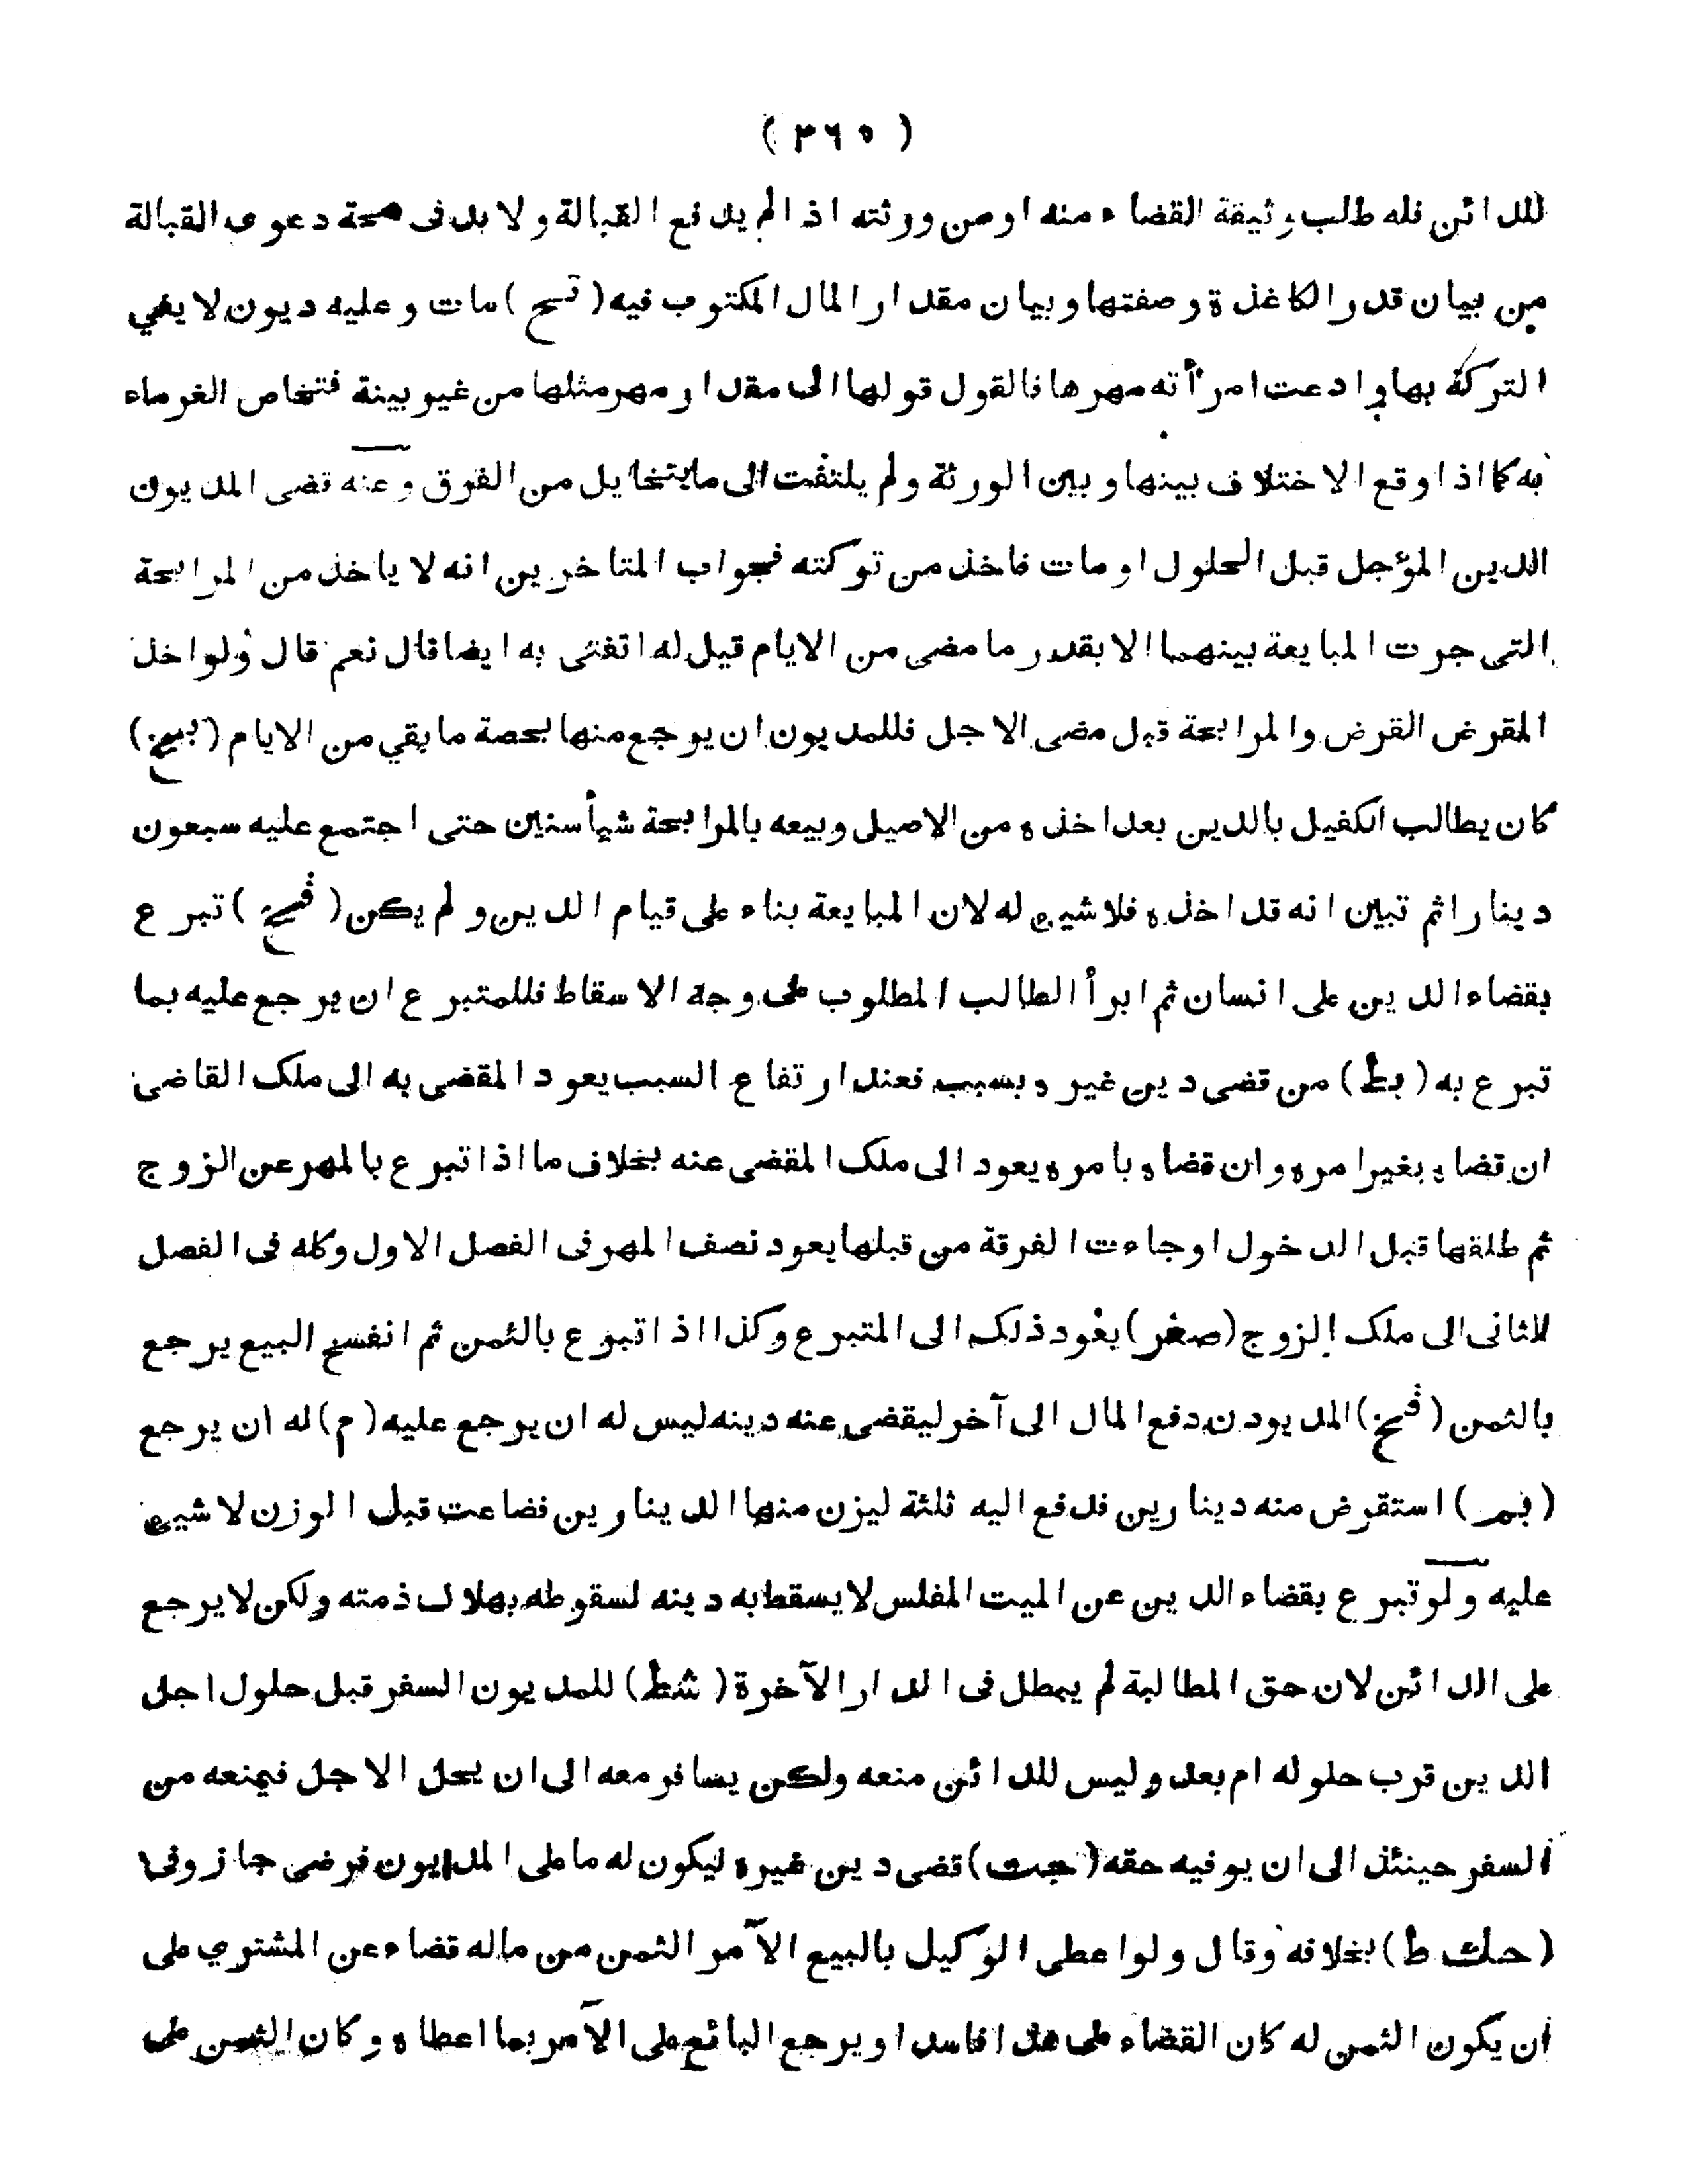 ( ٣٦٥ )
للدائن فله طلب وثيقة القضاء منه او من ورثته اذا لم يدفع القبالة ولا بد فى صحة دعوى القبالة
من بيان قدر الكاغذة وصفتها وبيان مقدار المال المكتوب فيه ( نسج ) مات وعليه ديون لا يفي
التركة بها وادعت امرأته مهرها فالقول قولها الى مقدار مهر مثلها من غير بينة فتخاص الغرماء
به كما اذا وقع الاختلاف بينها وبين الورثة ولم يلتفت الى ما يتخايل من الفوق وعنه قضى المديون
الدين المؤجل قبل الحلول او مات فاخذ من تركته فجواب المتاخرين انه لا ياخذ من المرابحة
التى جرت المبايعة بينهما الا بقدر ما مضى من الايام قيل له اتفتى به ايضا قال نعم قال ولو اخذ
المقرض القرض والمرابحة قبل مضى الاجل فللمديون ان يرجع منها بحصة ما بقي من الايام
كان يطالب الكفيل بالدين بعد اخذه من الاصيل ويبيعه بالمرابحة شيأ سنين حتى اجتمع عليه سبعون
دينارا ثم تبين انه قد اخذه فلا شىء له لان المبايعة بناء على قيام الدين ولم يكن تبرع
بقضاء الدين على انسان ثم ابرأ الطالب المطلوب على وجه الاسقاط فللمتبرع ان يرجع عليه بما
تبرع به ( بط ) من قضى دين غيره بسبب فعند ارتفاع السبب يعود المقضى به الى ملك القاضى
ان قضاه بغير امره وان قضاه بامره يعود الى ملك المقضى عنه بخلاف ما اذا تبرع بالمهر عن الزوج
ثم طلقها قبل الدخول او جاءت الفرقة من قبلها يعود نصف المهر فى الفصل الاول وكله فى الفصل
الثانى الى ملك الزوج (صغر) يعود ذلك الى المتبرع وكذا اذا تبرع بالثمن ثم انفسخ البيع يرجع
بالثمن (فخ) المديون دفع المال الى آخر ليقضى عنه دينه ليس له ان يرجع عليه (م) له ان يرجع
(بم) استقرض منه دينارين فدفع اليه ثلثة ليزن منها الدينارين فضاعت قبل الوزن لا شىء
عليه ولو تبرع بقضاء الدين عن الميت المفلس لا يسقط به دينه لسقوطه بهلاك ذمته ولكن لا يرجع
على الدائن لان حق المطالبة لم يبطل فى الدار الآخرة ( شط ) للمديون السفر قبل حلول اجل
الدين قرب حلوله ام بعد وليس للدائن منعه ولكن يسافر معه الى ان يحل الاجل فيمنعه من
السفر حينئذ الى ان يوفيه حقه ( جت ) قضى دين غيره ليكون له ما على المديون فرضى جاز وفى
( حك ط ) بخلافه وقال ولو اعطى الوكيل بالبيع الآمر الثمن من ماله قضاء عن المشتري على
ان يكون الثمن له كان القضاء على هذا فاسدا ويرجع البائع على الآمر بما اعطاه وكان الثمن على